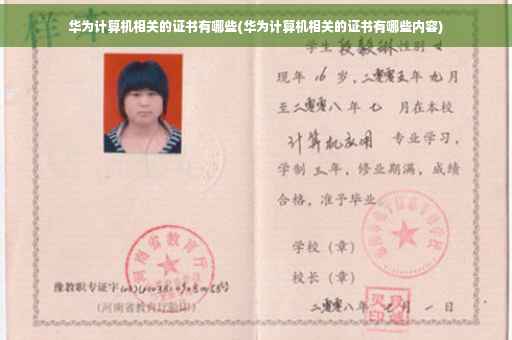 华为计算机相关的证书有哪些(华为计算机相关的证书有哪些内容)
样本
学生 段毅琳 性别 女
现年 16 岁，二零零五年 九月
至二零零八年 七 月在本校
计算机应用 专业学习，
学制 三年，修业期满，成绩
合格，准予毕业
学校（章）
校长（章）
河南省教育厅
豫教职专证字
(河南省教育厅验印)
二零零八年 七 月 一 日